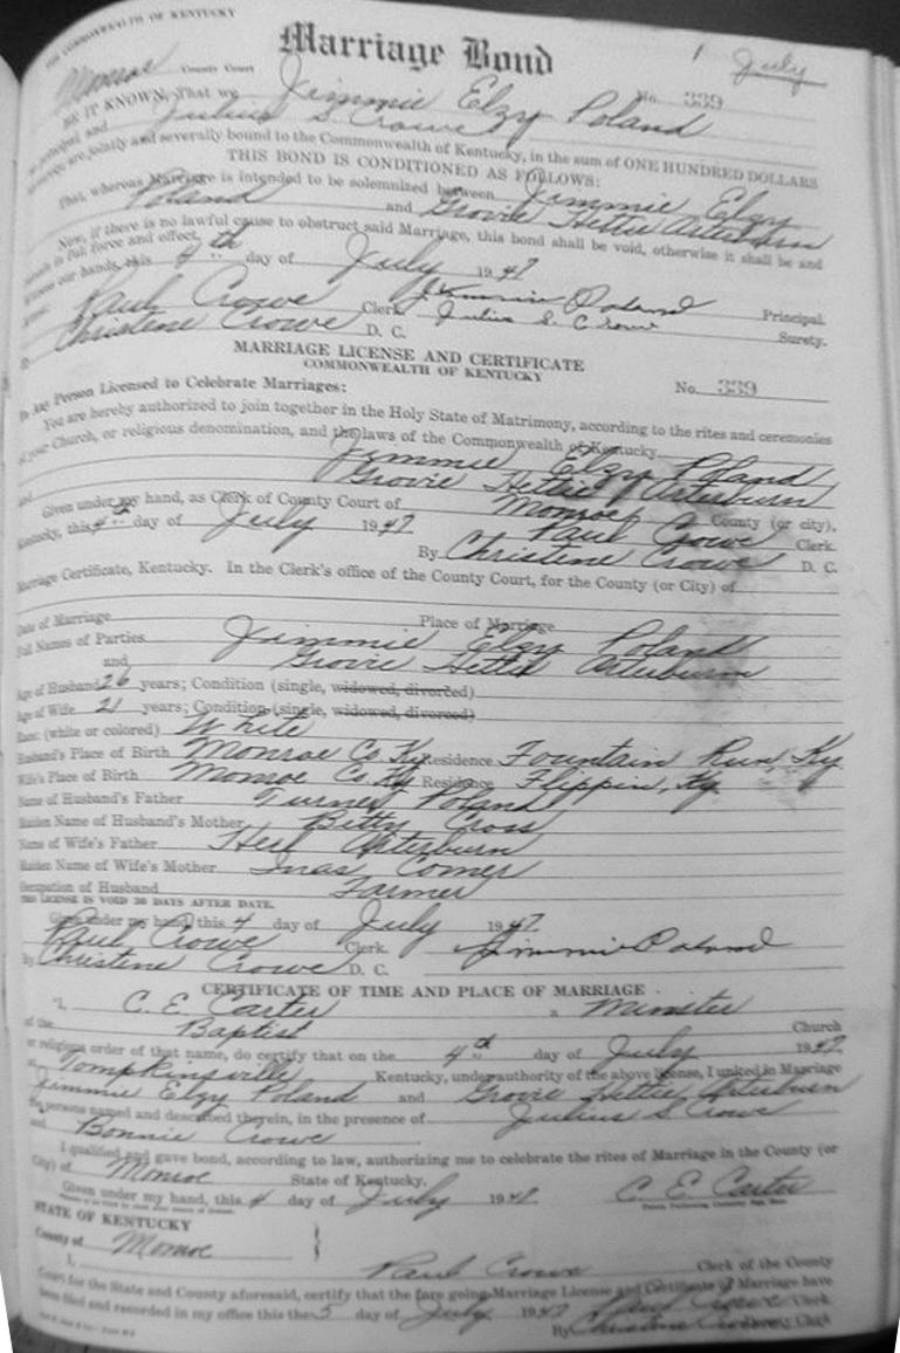 THE COMMONWEALTH OF KENTUCKY
Marriage Bond
1 July
Monroe County Court
No. 339
BE IT KNOWN, That we Jimmie Elzy Poland
as principal and Julius S Crowe
as surety, are jointly and severally bound to the Commonwealth of Kentucky, in the sum of ONE HUNDRED DOLLARS
THIS BOND IS CONDITIONED AS FOLLOWS:
That, whereas Marriage is intended to be solemnized between Jimmie Elzy
Poland and Grovie Hettie Arterburn
Now, if there is no lawful cause to obstruct said Marriage, this bond shall be void, otherwise it shall be and
remain in full force and effect.
Witness our hands, this 4th day of July 1947
Paul Crowe Clerk Jimmie Poland Principal.
Christene Crowe D. C. Julius S. Crowe Surety.
MARRIAGE LICENSE AND CERTIFICATE
COMMONWEALTH OF KENTUCKY
No. 339
To Any Person Licensed to Celebrate Marriages:
You are hereby authorized to join together in the Holy State of Matrimony, according to the rites and ceremonies
of your Church, or religious denomination, and the laws of the Commonwealth of Kentucky
Jimmie Elzy Poland
and Grovie Hettie Arterburn
Given under my hand, as Clerk of County Court of Monroe County (or city),
Kentucky, this 4th day of July 1947 Paul Crowe Clerk.
By Christene Crowe D. C.
Marriage Certificate, Kentucky. In the Clerk's office of the County Court, for the County (or City) of
Date of Marriage Place of Marriage
Full Names of Parties Jimmie Elzy Poland
and Grovie Hettie Arterburn
Age of Husband 26 years; Condition (single, widowed, divorced)
Age of Wife 21 years; Condition (single, widowed, divorced)
Race (white or colored) White
Husband's Place of Birth Monroe Co Ky Residence Fountain Run, Ky
Wife's Place of Birth Monroe Co Ky Residence Flippin, Ky
Name of Husband's Father Turner Poland
Maiden Name of Husband's Mother Bitty Cross
Name of Wife's Father Herl Arterburn
Maiden Name of Wife's Mother Inas Comer
Occupation of Husband Farmer
THIS LICENSE IS VOID 30 DAYS AFTER DATE.
Given under my hand this 4 day of July 1947
Paul Crowe Clerk. Jimmie Poland
By Christene Crowe D. C.
CERTIFICATE OF TIME AND PLACE OF MARRIAGE
I, C. E. Carter a Minster
of the Baptist Church
or religious order of that name, do certify that on the 4th day of July 1947
at Tompkinsville Kentucky, under authority of the above license, I united in Marriage
Jimmie Elzy Poland and Grovie Hettie Arterburn
the persons named and described therein, in the presence of Julius S Crowe
and Bonnie Crowe
I qualified and gave bond, according to law, authorizing me to celebrate the rites of Marriage in the County (or
City) of Monroe State of Kentucky.
Given under my hand, this 4 day of July 1947. C. E. Carter
STATE OF KENTUCKY
County of Monroe
I, Paul Crowe Clerk of the County
Court for the State and County aforesaid, certify that the fore going Marriage License and Certificate of Marriage have
been filed and recorded in my office this the 5 day of July 1947 Paul Crowe Clerk
By Christene Crowe Deputy Clerk